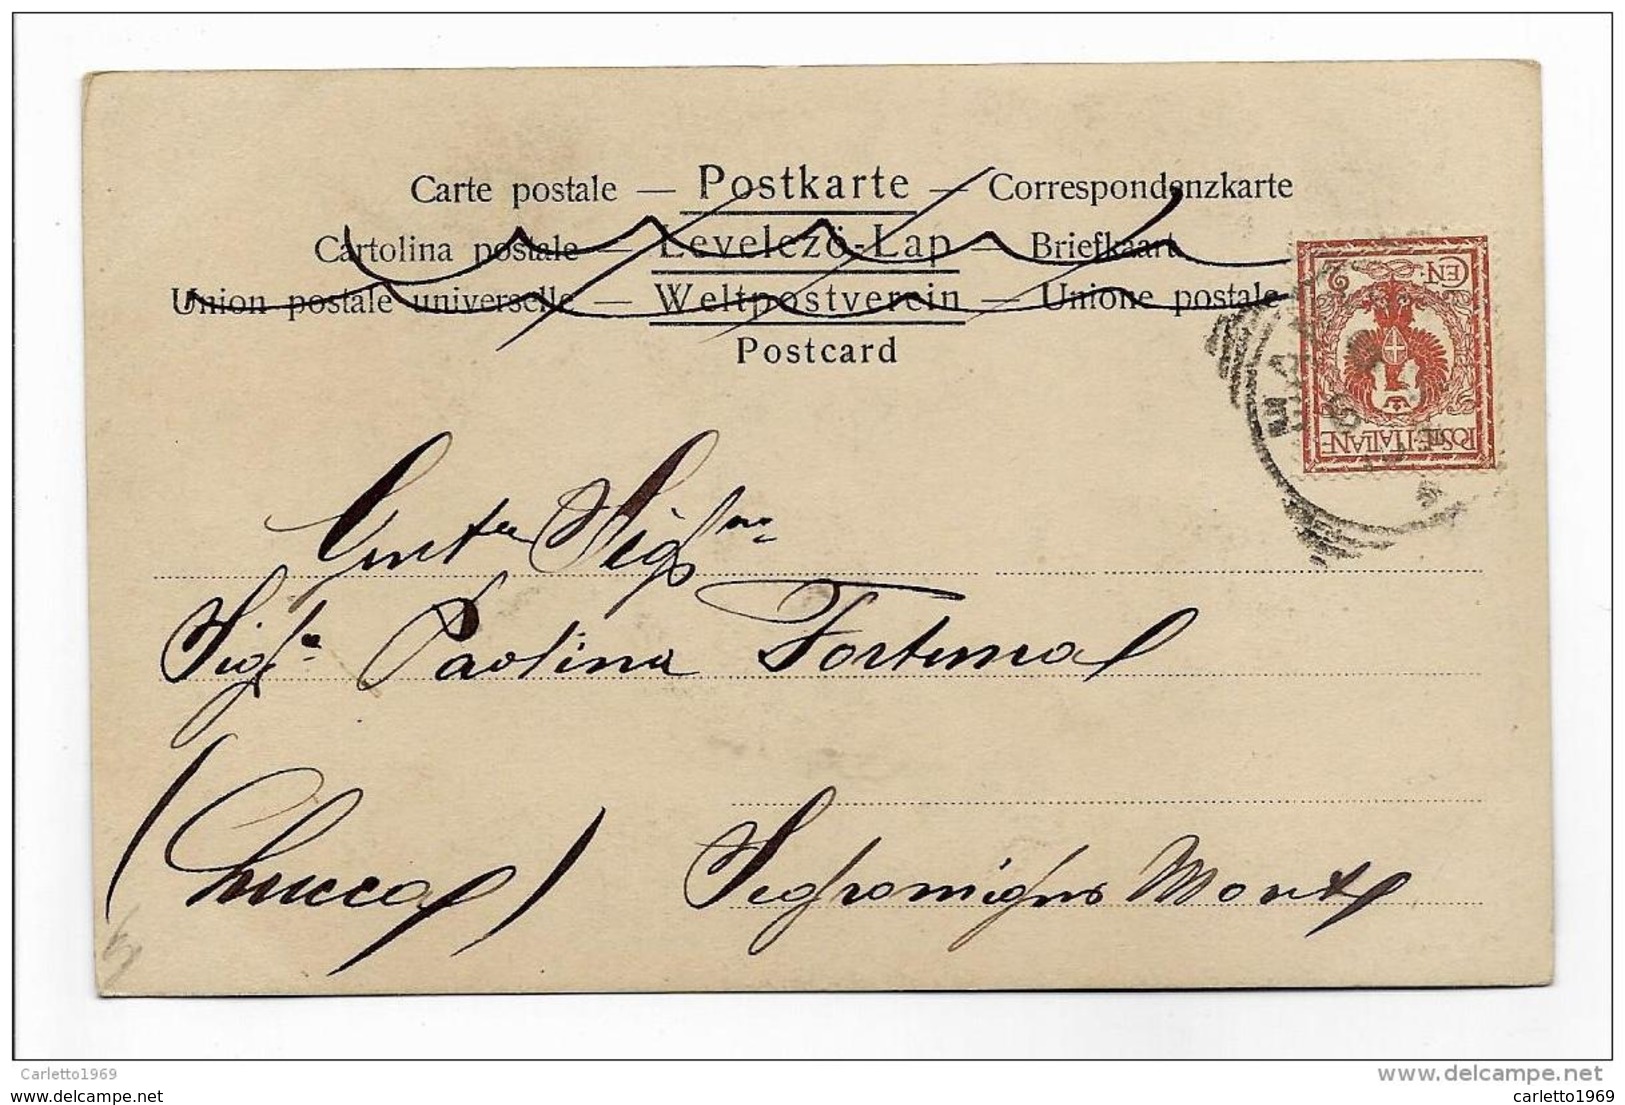 Carte postale — Postkarte — Correspondenzkarte
Cartolina postale — Levelező-Lap — Briefkaart
Union postale universelle — Weltpostverein — Unione postale
Postcard
CEN. 2
POSTE·ITALIANE
Gent.ma Sig.na
Sig.a Paolina Fortuna
(Lucca) Segromigno Monte
Carletto1969
www.delcampe.net
carletto1969